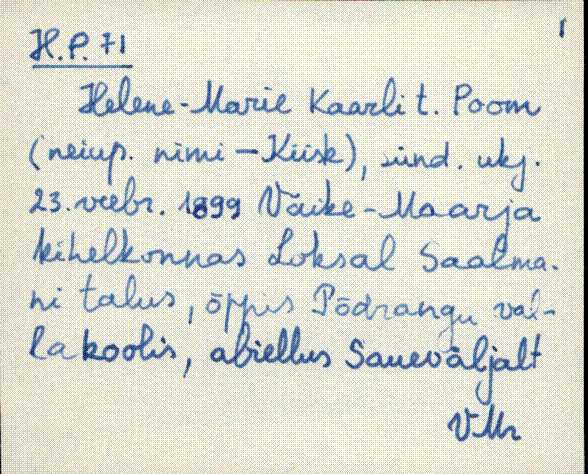 1
H.P. 71
Helene-Marie Kaarli t. Poom
(neiup. nimi – Kiisk), sünd. ukj.
23. veebr. 1899 Väike-Maarja
kihelkonnas Loksal Saalma-
ni talus, õppis Põdrangu val-
lakoolis, abiellus Saueväljalt
VMr